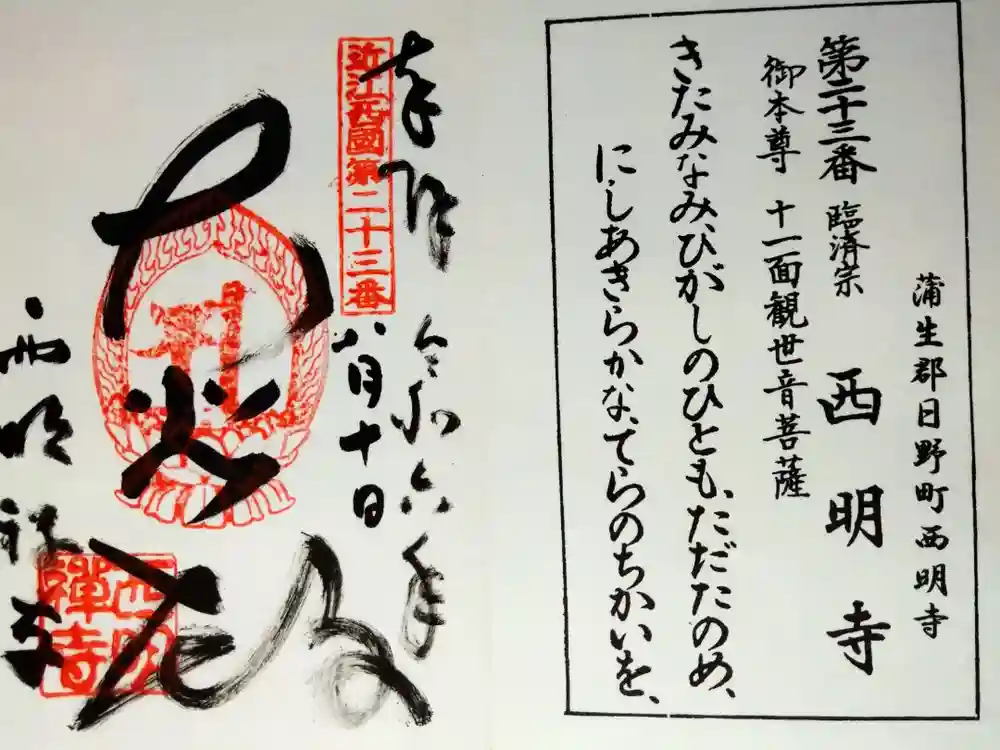 蒲生郡日野町西明寺
第二十三番 臨済宗 西明寺
御本尊 十一面観世音菩薩
きたみなみ、ひがしのひとも、ただたのめ、
にしあきらかな、てらのちかいを、
奉拝 令和六年
近江西國第二十三番
八月十日
西明禅寺
西明
禪寺